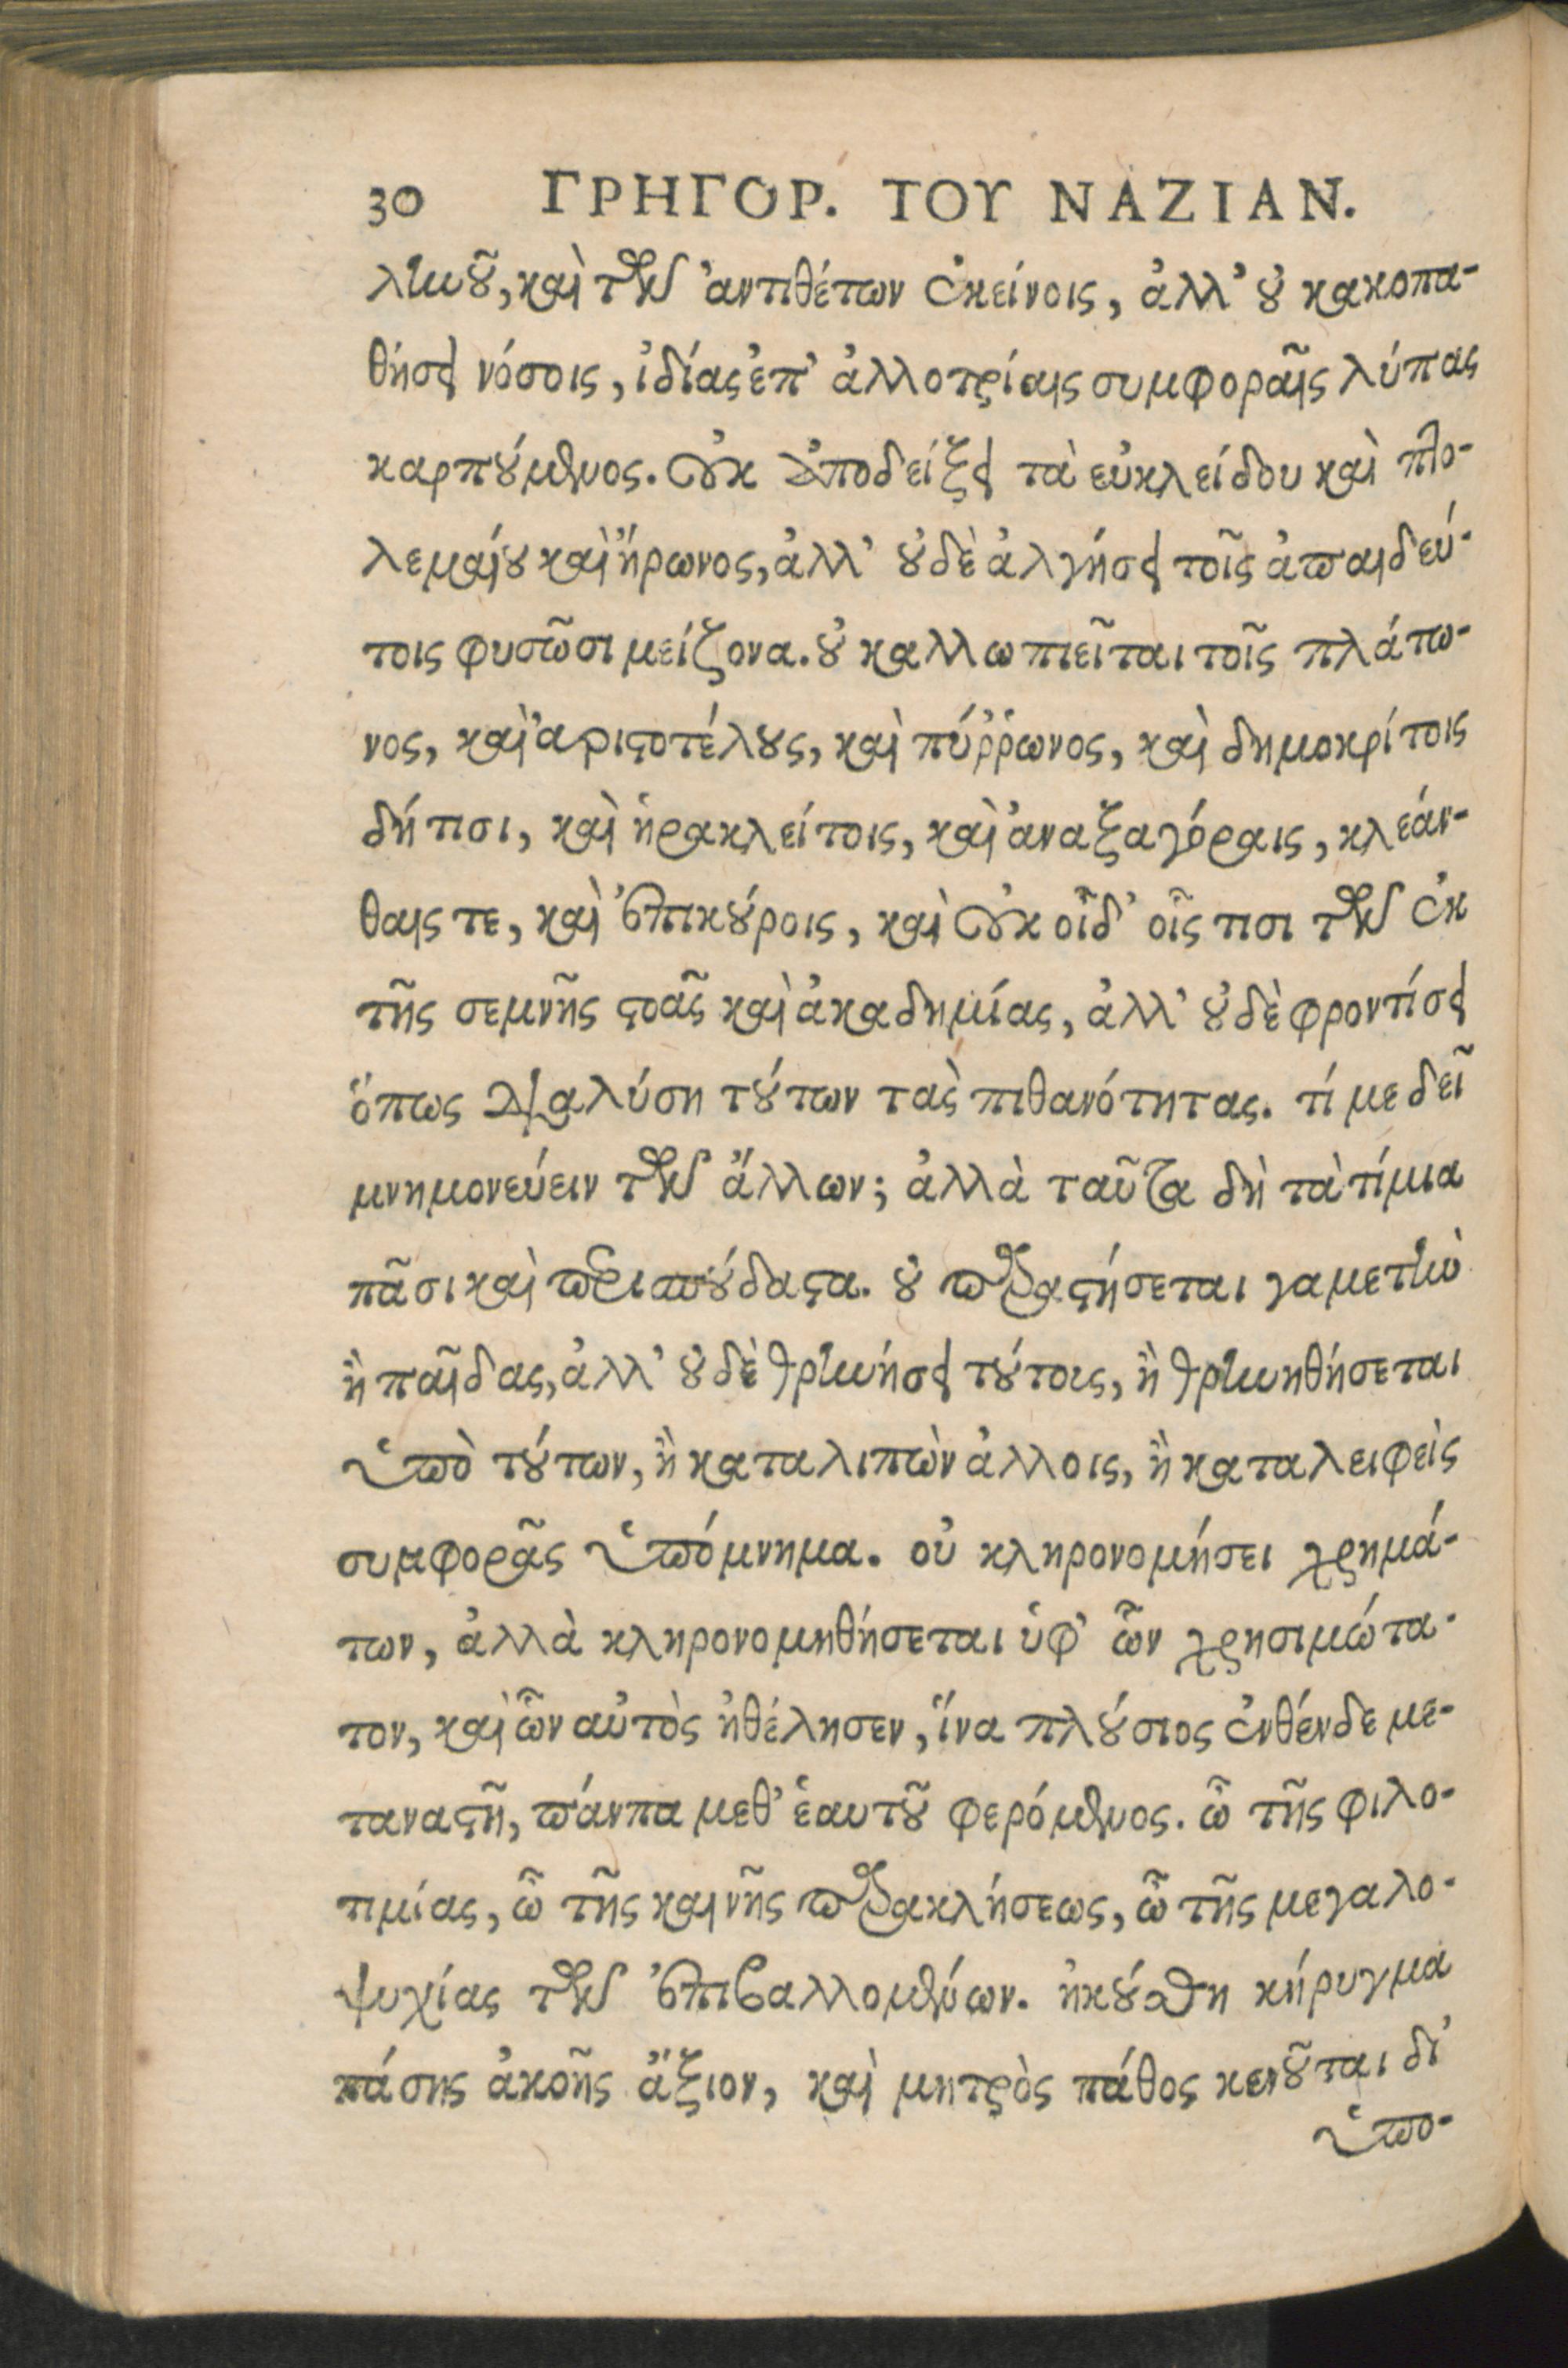 30 ΓΡΗΓΟΡ. ΤΟΥ ΝΑΖΙΑΝ.
ληνοῦ, καὶ τῶν ἀντιθέτων ἐκείνοις, ἀλλ' οὐ κακοπα-
θήσει νόσοις, ἰδίας ἐπ' ἀλλοτρίαις συμφοραῖς λύπας
καρπούμενος. οὐκ ἀποδείξει τὰ εὐκλείδου καὶ πτο-
λεμαίου καὶ ἥρωνος, ἀλλ' οὐδὲ ἀλγήσει τοῖς ἀπαιδεύ-
τοις φυσῶσι μείζονα. οὐ καλλωπιεῖται τοῖς πλάτω-
νος, καὶ ἀριστοτέλους, καὶ πύῤῥωνος, καὶ δημοκρίτοις
δή τισι, καὶ ἡρακλείτοις, καὶ ἀναξαγόραις, κλεάν-
θαις τε, καὶ ἐπικούροις, καὶ οὐκ οἶδ' οἷς τισι τῶν ἐκ
τῆς σεμνῆς στοᾶς καὶ ἀκαδημίας, ἀλλ' οὐδὲ φροντίσει
ὅπως διαλύση τούτων τὰς πιθανότητας. τί με δεῖ
μνημονεύειν τῶν ἄλλων; ἀλλὰ ταῦτα δὴ τὰ τίμια
πᾶσι καὶ περισπούδαστα. οὐ παραστήσεται γαμετὴν
ἢ παῖδας, ἀλλ' οὐδὲ θρηνήσει τούτοις, ἢ θρηνηθήσεται
ὑπὸ τούτων, ἢ καταλιπὼν ἄλλοις, ἢ καταλειφεὶς
συμφορᾶς ὑπόμνημα. οὐ κληρονομήσει χρημά-
των, ἀλλὰ κληρονομηθήσεται ὑφ' ὧν χρησιμώτα-
τον, καὶ ὧν αὐτὸς ἠθέλησεν, ἵνα πλούσιος ἐνθένδε με-
ταναστῆ, πάντα μεθ' ἑαυτοῦ φερόμενος. ὢ τῆς φιλο-
τιμίας, ὢ τῆς καινῆς παρακλήσεως, ὢ τῆς μεγαλο-
ψυχίας τῶν ἐπιβαλλομένων. ἠκούσθη κήρυγμα
πάσης ἀκοῆς ἄξιον, καὶ μητρὸς πάθος κενοῦται δι'
ὑπο-